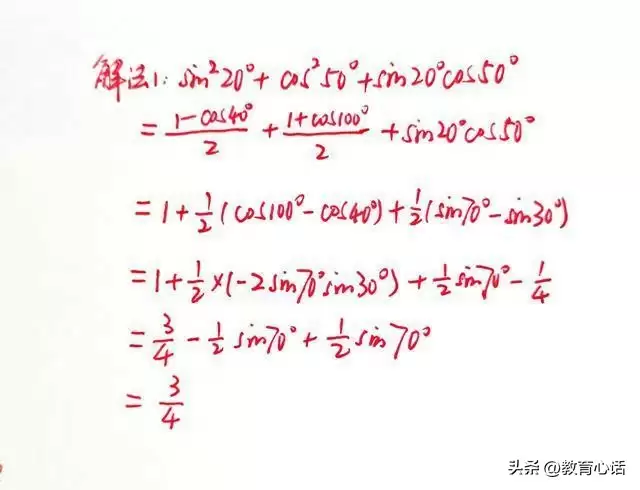 解法1: sin²20°+ cos²50°+sin20°cos50°
= (1-cos40°)/2 + (1+cos100°)/2 + sin20°cos50°
= 1+ 1/2 (cos100°-cos40°) + 1/2 (sin70°-sin30°)
= 1+ 1/2 ×(-2sin70°sin30°) + 1/2 sin70° - 1/4
= 3/4 - 1/2 sin70° + 1/2 sin70°
= 3/4
头条 @教育心话